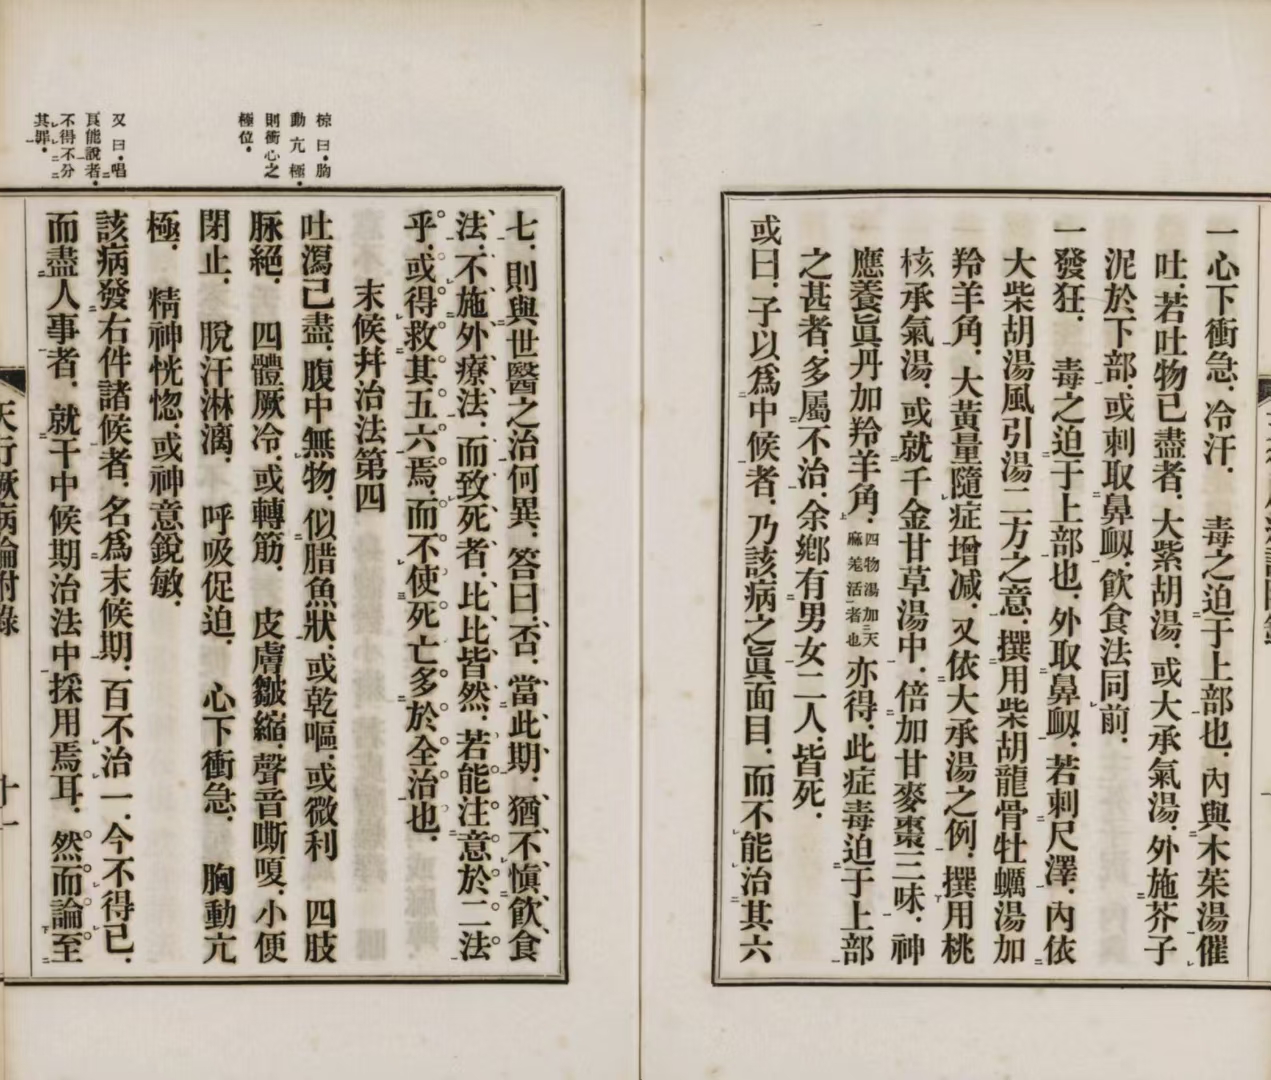 一心下衝急、冷汗、　毒之迫于上部也、內與木茱湯催
吐、若吐物已盡者、大紫胡湯、或大承氣湯、外施芥子
泥於下部、或刺取鼻衂、飲食法同前、
一發狂、　毒之迫于上部也、外取鼻衂、若刺尺澤、內依
大柴胡湯風引湯二方之意、撰用柴胡龍骨牡蠣湯加
羚羊角、大黃量隨症增减、又依大承湯之例、撰用桃
核承氣湯、或就千金甘草湯中、倍加甘麥棗三味、神
應養眞丹加羚羊角、四物湯加天麻羌活者也亦得、此症毒迫于上部
之甚者、多屬不治、余鄕有男女二人、皆死、
或曰、子以爲中候者、乃該病之眞面目、而不能治其六
七、則與世醫之治何異、答曰、否、當此期、猶不愼飮食
法、不施外療法、而致死者、比比皆然、若能注意於二法
乎、或得救其五六焉、而不使死亡多於全治也、
末候幷治法第四
吐瀉已盡、腹中無物、似腊魚狀、或乾嘔、或微利　四肢
脉絕、　四體厥冷、或轉筋、　皮膚皺縮、聲音嘶嗄、小便
閉止、　脫汗淋漓、　呼吸促迫、　心下衝急、　胸動亢
極、　精神恍惚、或神意銳敏、
該病發右件諸候者、名爲末候期、百不治一、今不得已、
而盡人事者、就干中候期治法中採用焉耳、然而論至
椋曰、胸
動亢極、
則衝心之
極位、
又曰、唱
眞能說者、
不得不分
其罪、
天行厥病論附錄
十一